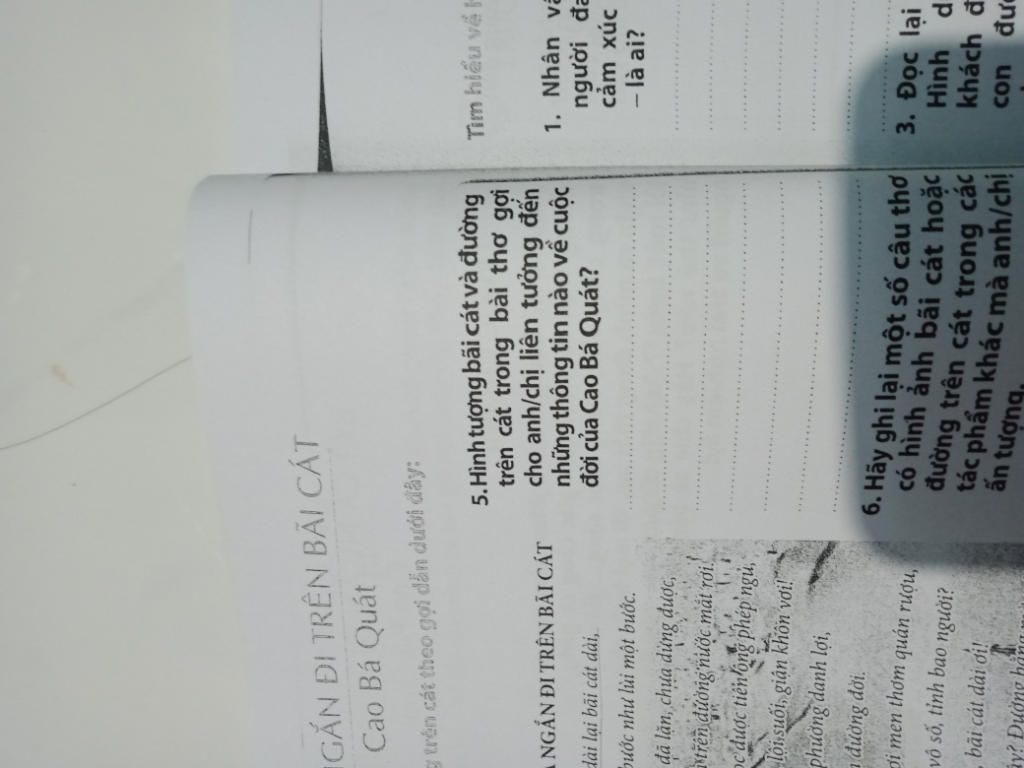 NGẮN ĐI TRÊN BÃI CÁT
Cao Bá Quát
trên cát theo gợi dẫn dưới đây:
NGẮN ĐI TRÊN BÃI CÁT
dài lại bãi cát dài,
bước như lùi một bước.
đã lặn, chưa dừng được,
trên đường nước mắt rơi.
được tiên ông phép ngủ,
lội suối, giận khôn vơi!
phường danh lợi,
đường đời.
men thơm quán rượu,
vô số, tỉnh bao người?
bãi cát dài ơi!
5. Hình tượng bãi cát và đường
trên cát trong bài thơ gợi
cho anh/chị liên tưởng đến
những thông tin nào về cuộc
đời của Cao Bá Quát?
6. Hãy ghi lại một số câu thơ
có hình ảnh bãi cát hoặc
đường trên cát trong các
tác phẩm khác mà anh/chị
ấn tượng.
Tìm hiểu về
1. Nhân
người
cảm xúc
– là ai?
3. Đọc lại
Hình
khách
con